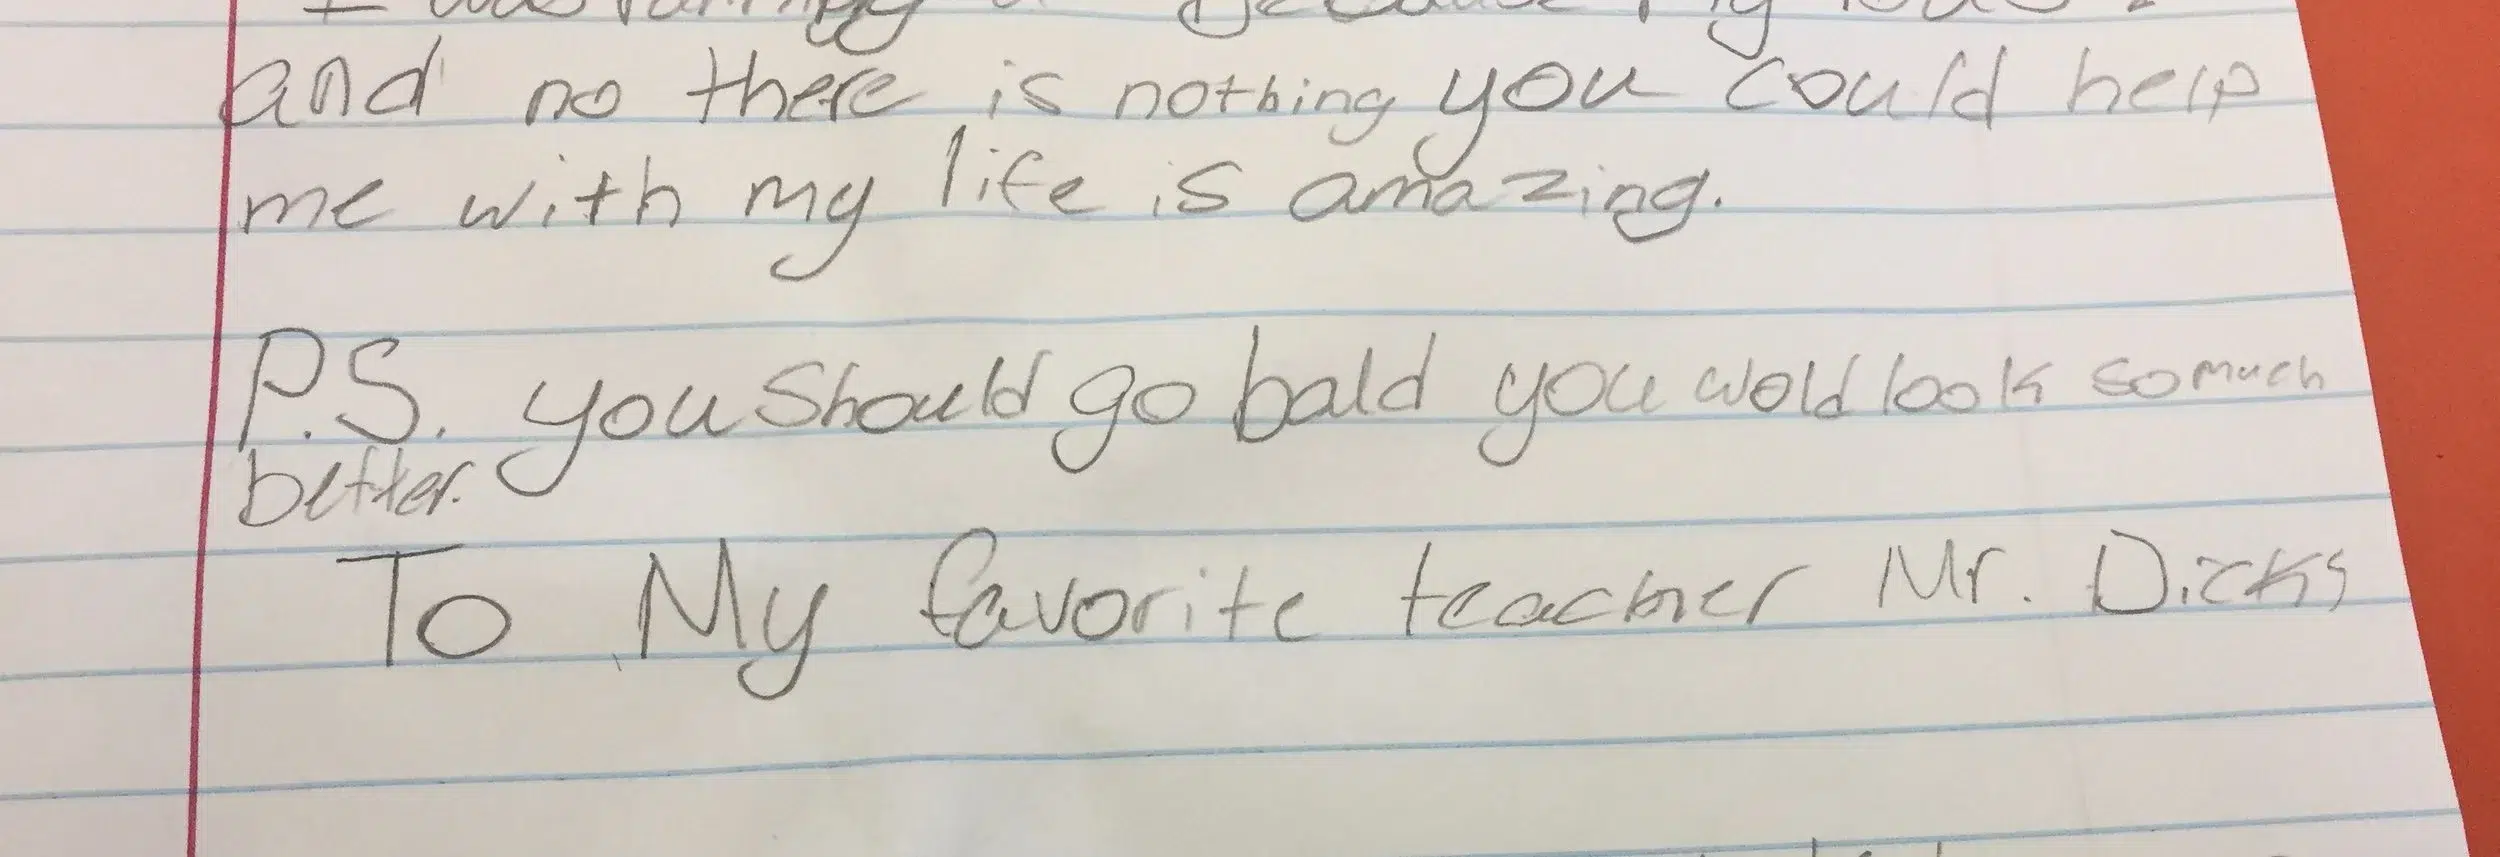 because my
and no there is nothing you could help
me with my life is amazing.
P.S. you should go bald you wold look so much
better.
To My favorite teacher Mr. Dicks